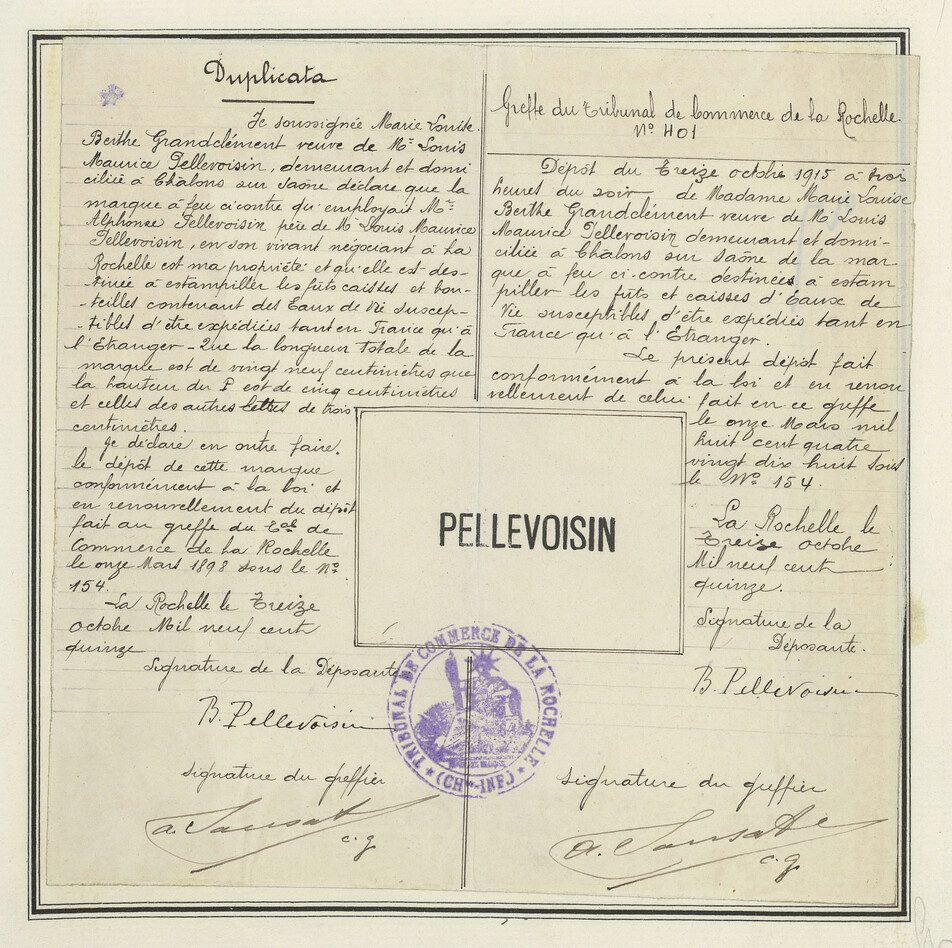 Duplicata
Je soussignée Marie Louise
Berthe Grandclément veuve de Mr Louis
Maurice Pellevoisin, demeurant et domi
ciliée à Châlons sur Saône déclare que la
marque à feu ci contre qu'employait Mr
Alphonse Pellevoisin père de Mr Louis Maurice
Pellevoisin, en son vivant négociant à La
Rochelle est ma propriété et qu'elle est des-
tinée à estampiller les fûts caisses et bou-
-teilles contenant des Eaux de Vie suscep-
-tibles d'être expédiées tant en France qu'à
l'Etranger - Que la longueur totale de la
marque est de vingt neuf centimètres que
la hauteur du P est de cinq centimètres
et celles des autres lettres de trois
centimètres.
Je déclare en outre faire
le dépôt de cette marque
conformément à la loi et
en renouvellement du dépôt
fait au greffe du Tal de
Commerce de La Rochelle
le onze Mars 1898 sous le No
154.
La Rochelle le Treize
octobre Mil neuf cent
quinze
Signature de la Déposante
B. Pellevoisin
Signature du greffier
c.g
Greffe du Tribunal de Commerce de la Rochelle
No 401
Dépôt du Treize octobre 1915 à trois
heures du soir de Madame Marie Louise
Berthe Grandclément veuve de Mr Louis
Maurice Pellevoisin demeurant et domi-
ciliée à Châlons sur Saône de la mar
que à feu ci-contre destinées à estam
piller les fûts et caisses d'Eaux de
Vie susceptibles d'être expédiés tant en
France qu'à l'Etranger.
Le présent dépôt fait
conformément à la loi et en renou
vellement de celui
fait en ce greffe
le onze Mars mil
huit cent quatre
vingt dix huit sous
le No 154.
La Rochelle le
Treize octobre
Mil neuf cent
quinze.
Signature de la
Déposante.
B. Pellevoisin
Signature du greffier
c.g
PELLEVOISIN
TRIBUNAL DE COMMERCE DE LA ROCHELLE
(CHte-INF.)